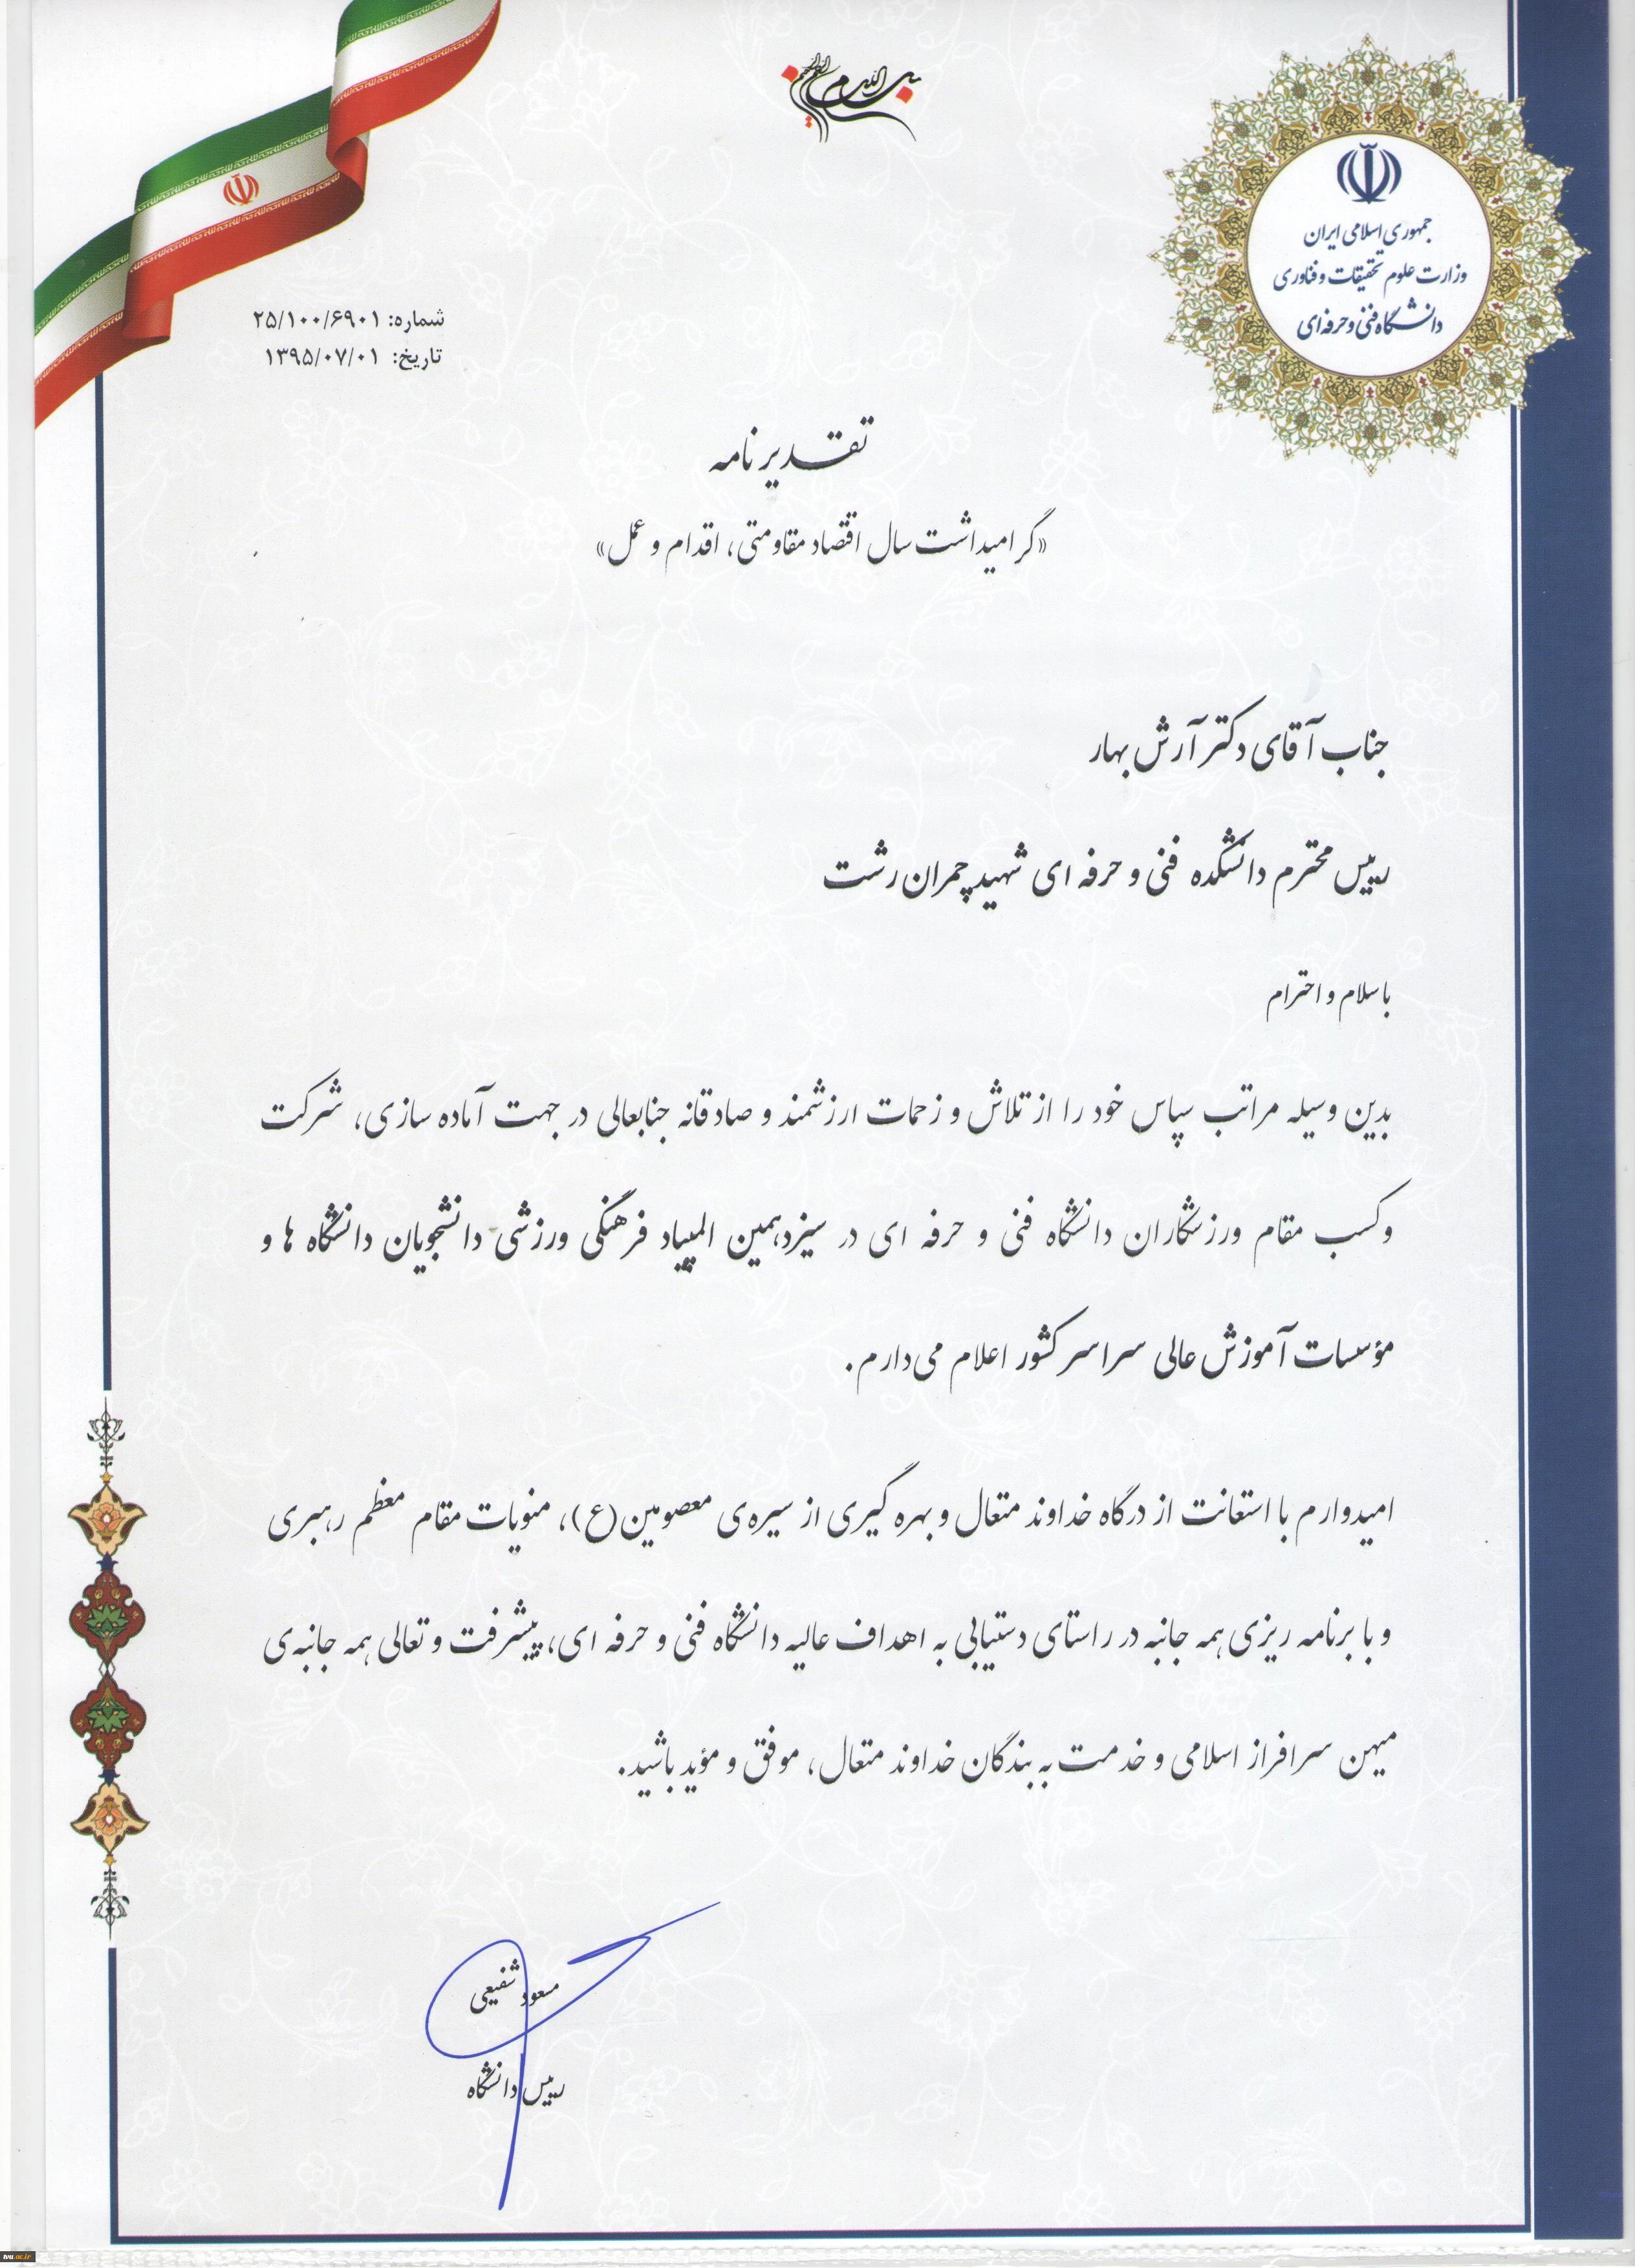 بسم الله الرحمن الرحیم
جمهوری اسلامی ایران
وزارت علوم تحقیقات و فناوری
دانشگاه فنی و حرفه‌ای
شماره: ۲۵/۱۰۰/۶۹۰۱
تاریخ: ۱۳۹۵/۰۷/۰۱
تقدیر نامه
«گرامیداشت سال اقتصاد مقاومتی، اقدام و عمل»
جناب آقای دکتر آرش بهار
رییس محترم دانشکده فنی و حرفه ای شهید چمران رشت
با سلام و احترام
بدین وسیله مراتب سپاس خود را از تلاش و زحمات ارزشمند و صادقانه جنابعالی در جهت آماده سازی، شرکت
و کسب مقام ورزشکاران دانشگاه فنی و حرفه ای در سیزدهمین المپیاد فرهنگی ورزشی دانشجویان دانشگاه ها و
مؤسسات آموزش عالی سراسر کشور اعلام می‌دارم.
امیدوارم با استعانت از درگاه خداوند متعال و بهره گیری از سیره‌ی معصومین(ع)، منویات مقام معظم رهبری
و با برنامه ریزی همه جانبه در راستای دستیابی به اهداف عالیه دانشگاه فنی و حرفه ای، پیشرفت و تعالی همه جانبه‌ی
میهن سرافراز اسلامی و خدمت به بندگان خداوند متعال، موفق و مؤید باشید.
مسعود شفیعی
رییس دانشگاه
tvu.ac.ir